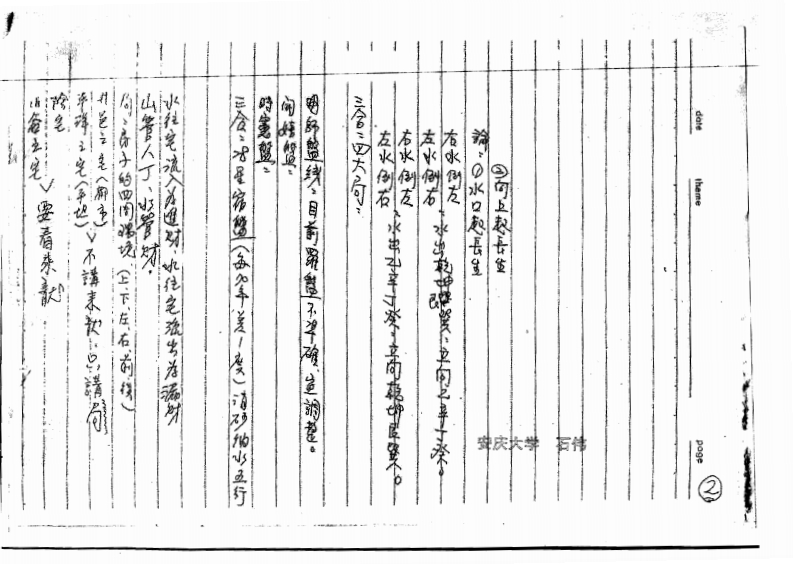 date
theme
page
2
安庆大学 石伟
②向上起長生
論:①水口起長生
右水倒左
左水倒右:水出乾坤艮巽:立向乙辛丁癸。
右水倒左
左水倒右:水出乙辛丁癸:立向乾坤艮巽。
三合:四大局:
目前羅盤不準確,宜調整。
三合:28星宿盤(每72年差1度)消砂納水五行
水往宅流入為進財 水往宅流出為漏財
山管人丁、水管財。
局:房子的四周環境(上、下、左、右前後)
井邑之宅(都市)
平洋之宅(平地)>不講來龍:只講局
陰宅
山谷之宅>要看來龍